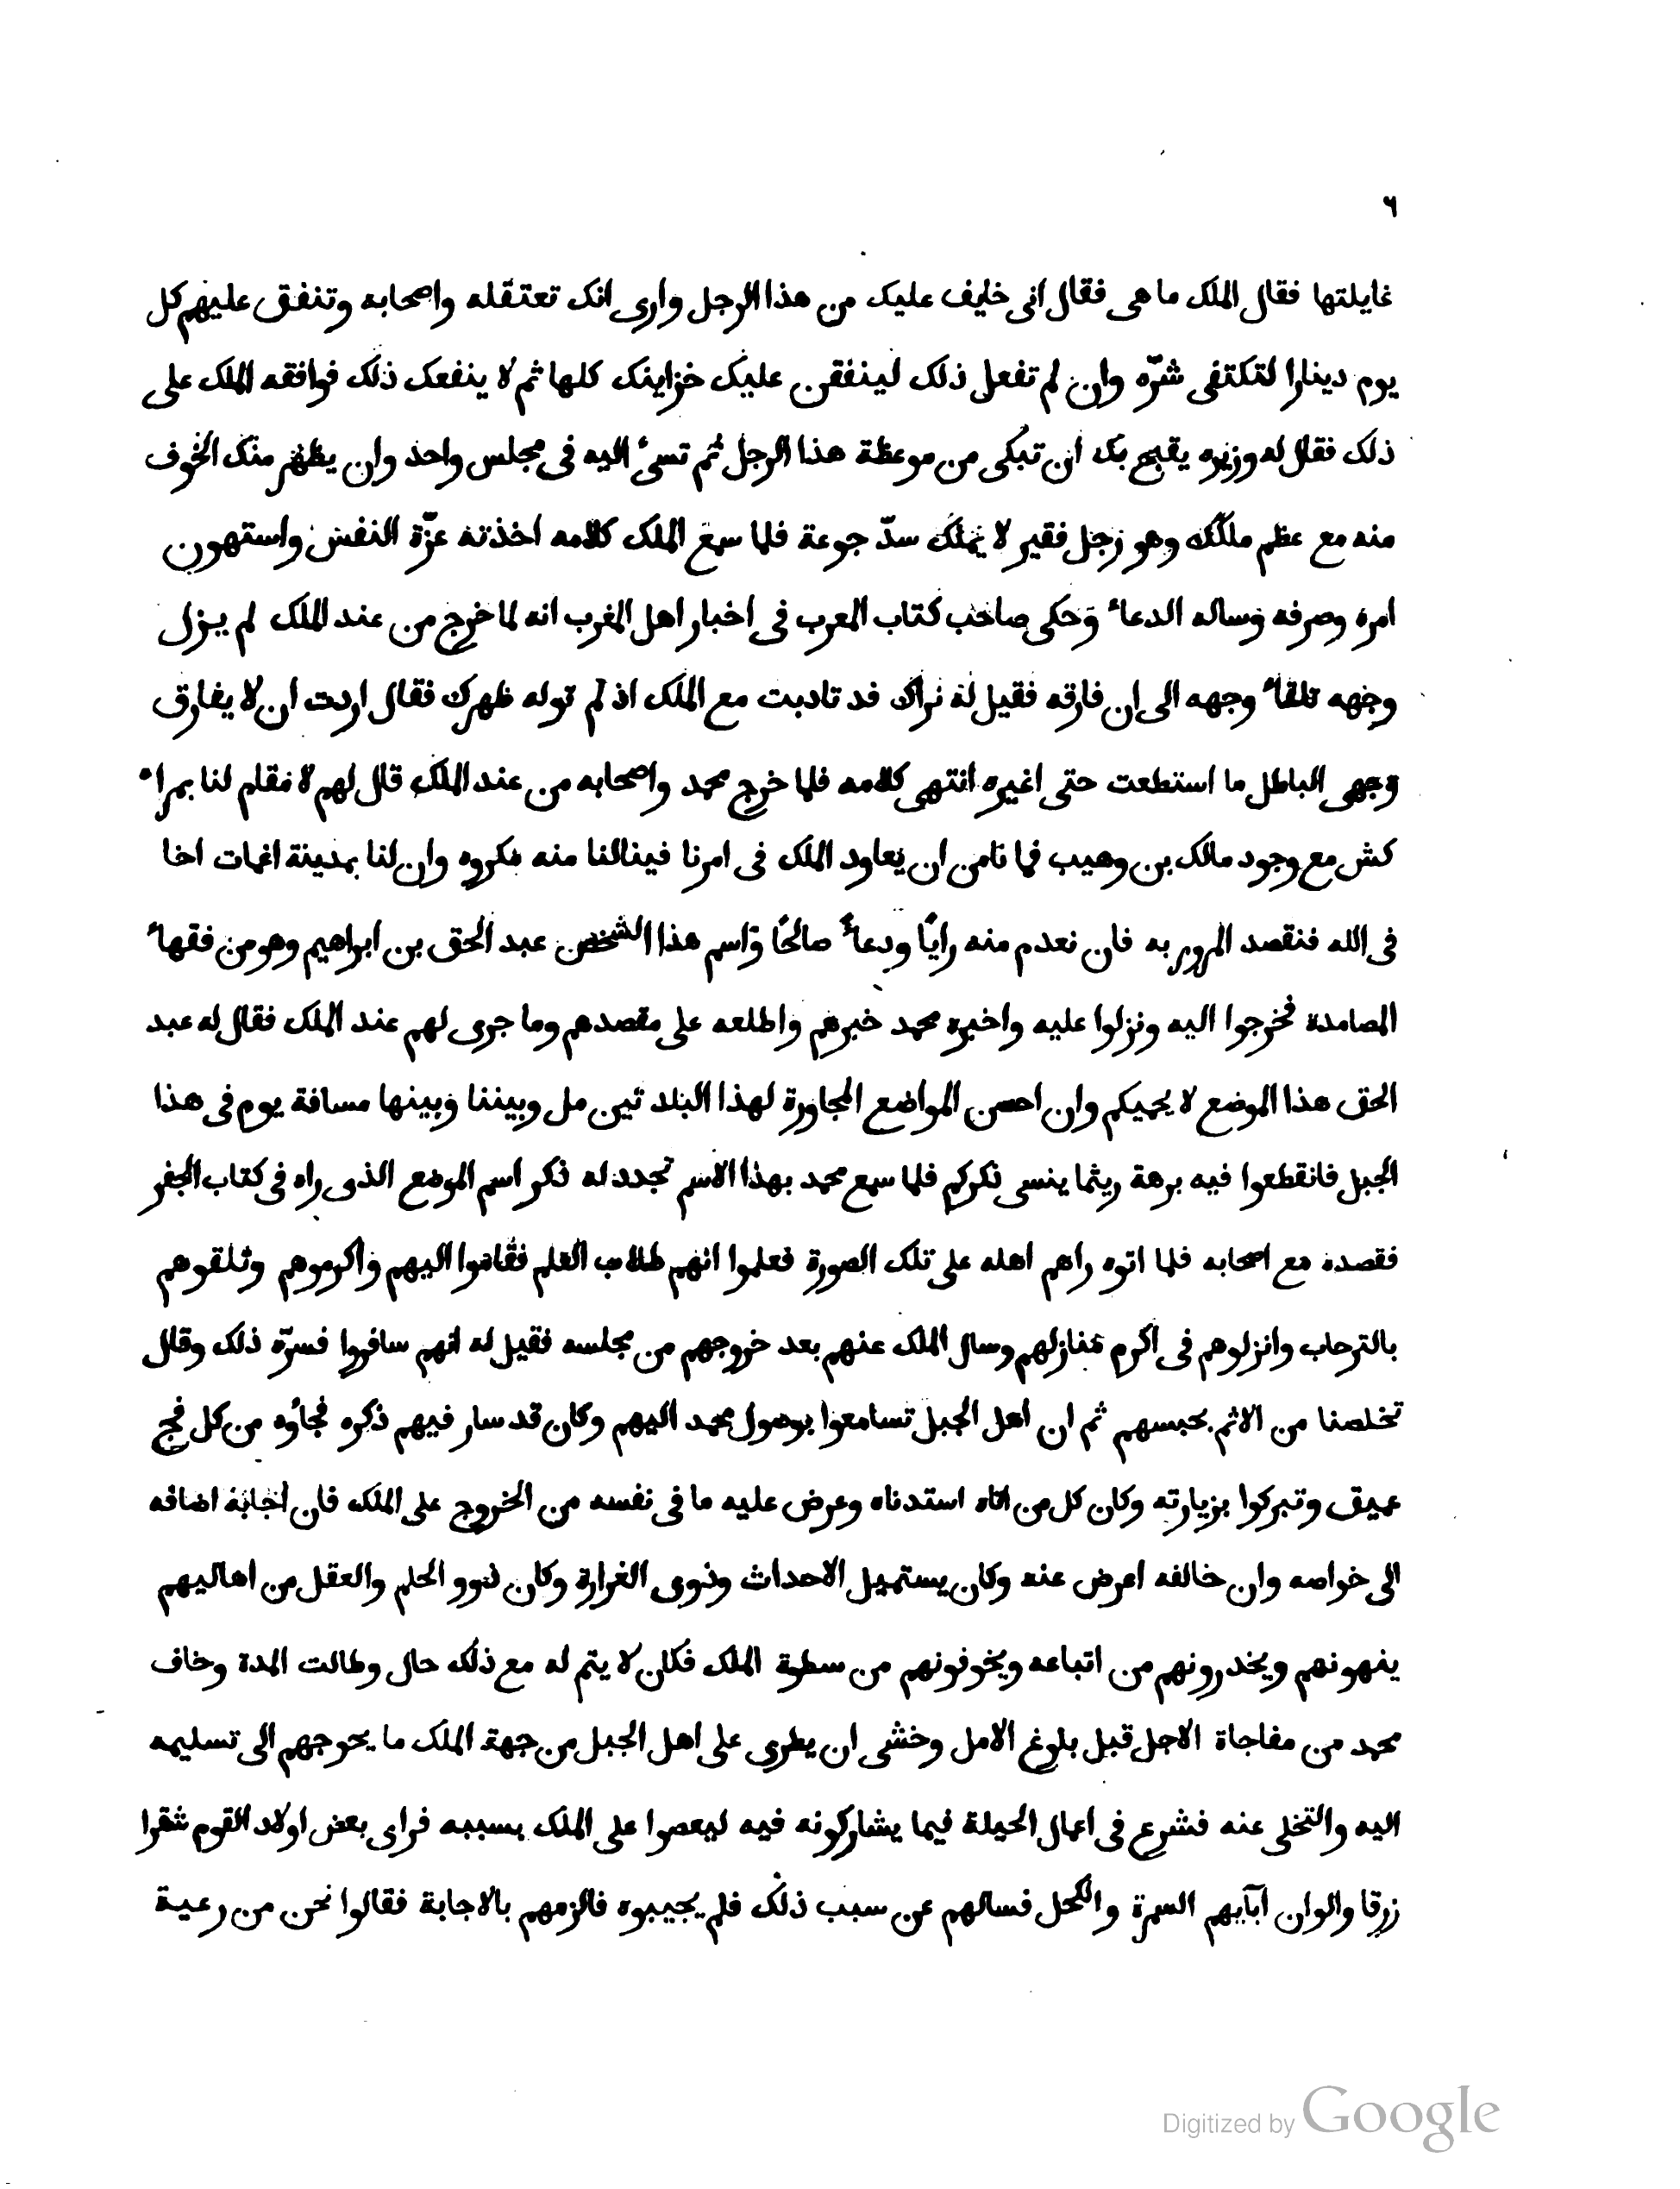 ٦
غايلتها فقال الملك ما هى فقال انى خايف عليك من هذا الرجل وارى انك تعتقله واصحابه وتنفق عليهم كل
يوم دينارا لتكتفى شرّه وان لم تفعل ذلك لينفقن عليك خزاينك كلها ثم لا ينفعك ذلك فوافقه الملك على
ذلك فقال له وزيره يقبح بك ان تبكى من موعظة هذا الرجل ثم تسىء اليه فى مجلس واحد وان يظهر منك الخوف
منه مع عظم ملكك وهو رجل فقير لا يملك سدّ جوعة فلما سمع الملك كلامه اخذته عزّة النفس واستهون
امره وصرفه وساله الدعاء وحكى صاحب كتاب المعرب فى اخبار اهل المغرب انه لما خرج من عند الملك لم يزل
وجهه تلقاء وجهه الى ان فارقه فقيل له نراك قد تادبت مع الملك اذ لم توله ظهرك فقال اردت ان لا يفارق
وجهى الباطل ما استطعت حتى اغيره انتهى كلامه فلما خرج محمد واصحابه من عند الملك قال لهم لا مقام لنا بمرا
كش مع وجود مالك بن وهيب فما نامن ان يعاود الملك فى امرنا فينالنا منه مكروه وان لنا بمدينة اغمات اخا
فى الله فنقصد المرور به فان نعدم منه رايًا ودعاءً صالحًا واسم هذا الشخص عبد الحق بن ابراهيم وهو من فقهاء
المصامدة فخرجوا اليه ونزلوا عليه واخبره محمد خبرهم واطلعه على مقصدهم وما جرى لهم عند الملك فقال له عبد
الحق هذا الموضع لا يحميكم وان احصن المواضع المجاورة لهذا البلد تين مل وبيننا وبينها مسافة يوم فى هذا
الجبل فانقطعوا فيه برهة ريثما ينسى ذكركم فلما سمع محمد بهذا الاسم تجدد له ذكر اسم الموضع الذى راه فى كتاب الجفر
فقصده مع اصحابه فلما اتوه راهم اهله على تلك الصورة فعلموا انهم طلاب العلم فقاموا اليهم واكرموهم وتلقوهم
بالترحاب وانزلوهم فى اكرم منازلهم وسال الملك عنهم بعد خروجهم من مجلسه فقيل له انهم سافروا فسرّه ذلك وقال
تخلصنا من الاثم بحبسهم ثم ان اهل الجبل تسامعوا بوصول محمد اليهم وكان قد سار فيهم ذكره فجاؤه من كل فج
عميق وتبركوا بزيارته وكان كل من اتاه استدناه وعرض عليه ما فى نفسه من الخروج على الملك فان اجابة اضافه
الى خواصه وان خالفه اعرض عنه وكان يستميل الاحداث وذوى الغرارة وكان ذوو الحلم والعقل من اهاليهم
ينهونهم ويحذرونهم من اتباعه ويخوفونهم من سطوة الملك فكان لا يتم له مع ذلك حال وطالت المدة وخاف
محمد من مفاجاة الاجل قبل بلوغ الامل وخشى ان يطرى على اهل الجبل من جهة الملك ما يحوجهم الى تسليمه
اليه والتخلى عنه فشرع فى اعمال الحيلة فيما يشاركونه فيه ليعصوا على الملك بسببه فراى بعض اولاد القوم شقرا
زرقا والوان آبآيهم السمرة والكحل فسالهم عن سبب ذلك فلم يجيبوه فالزمهم بالاجابة فقالوا نحن من رعية
Digitized by Google